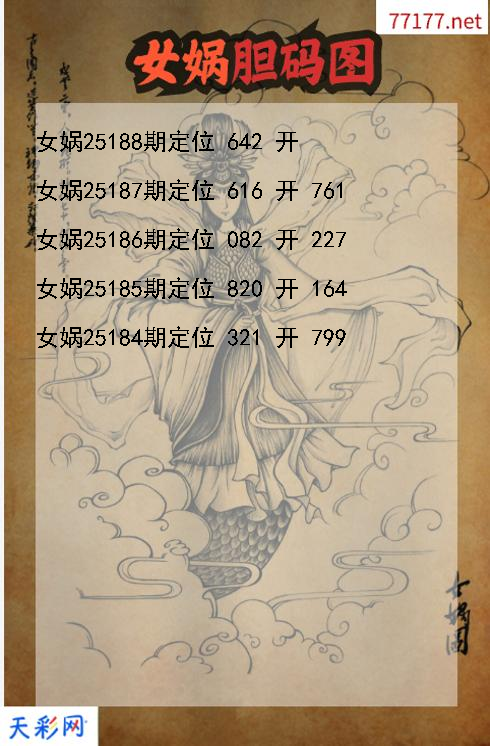 77177.net
女娲胆码图
女娲25188期定位 642 开
女娲25187期定位 616 开 761
女娲25186期定位 082 开 227
女娲25185期定位 820 开 164
女娲25184期定位 321 开 799
女娲图
天彩网